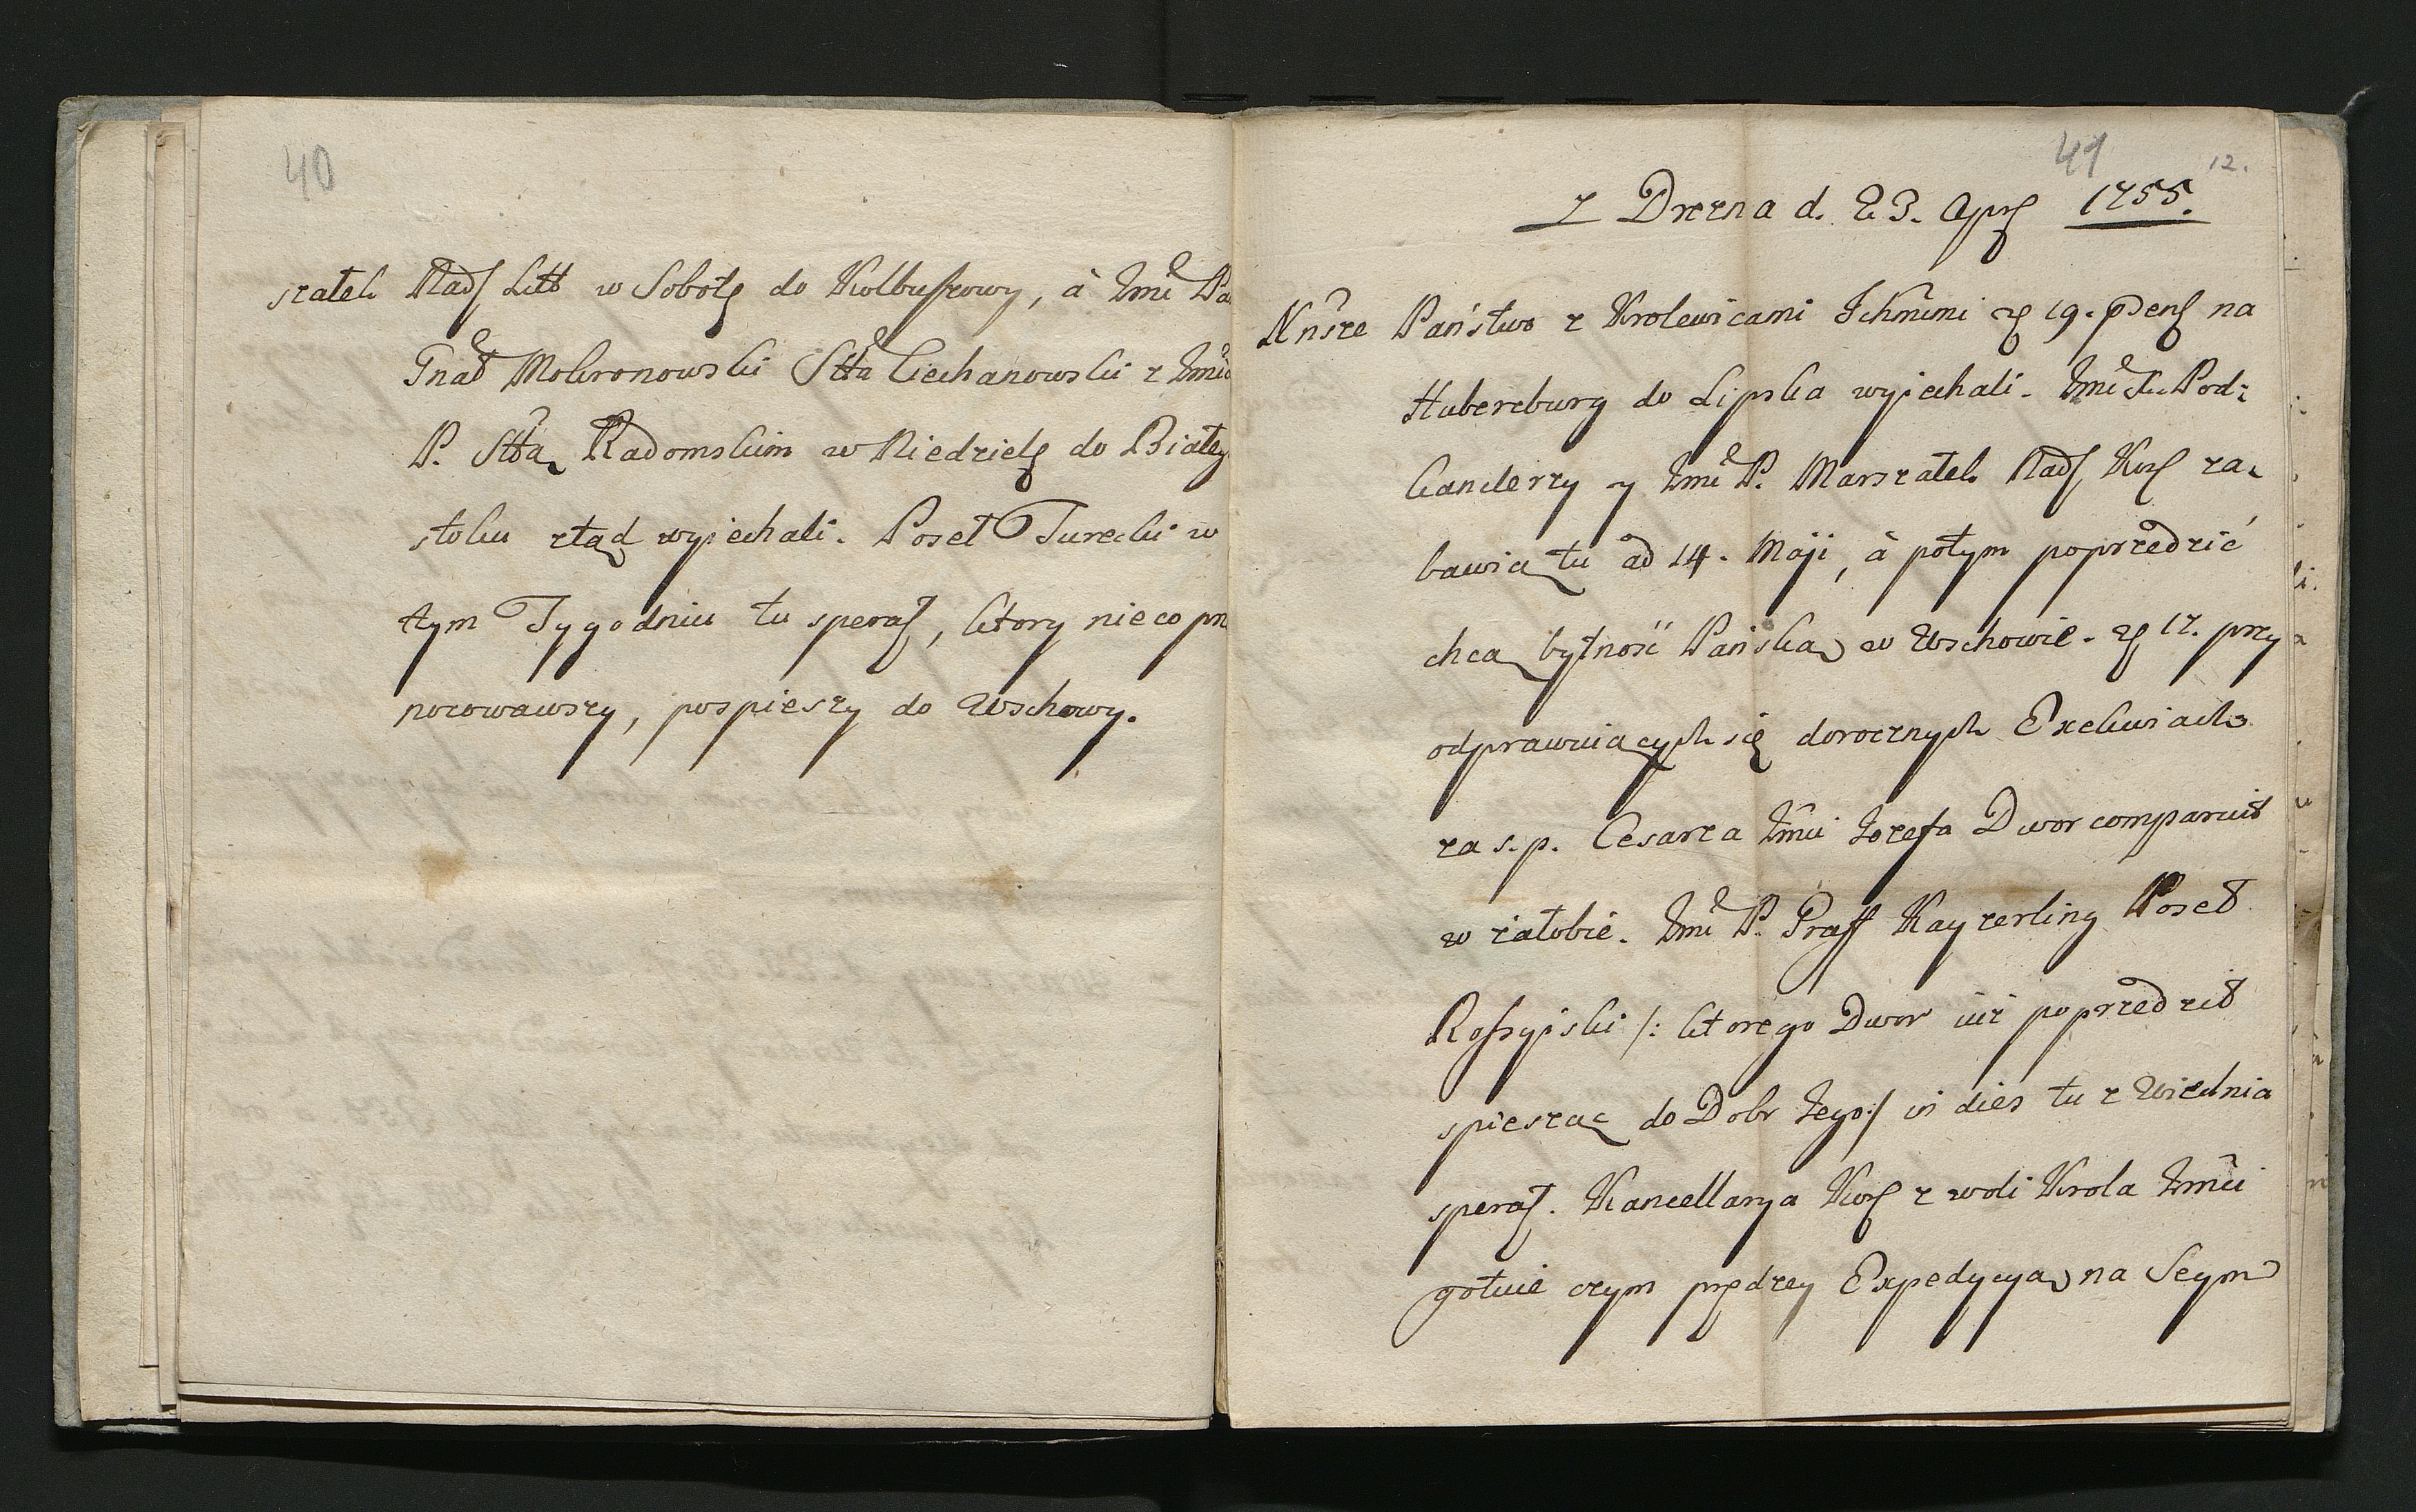 40
szałek Nadf Litt w Sobotę do Kolbuszowy, à Jmć Pa
Gnał Mokronowski Stta Ciechanowski z Jmć
P. Sttą Radomskim w Niedzielę do Białey
stoku ztąd wyiechali. Poseł Turecki w
tym Tygodniu tu speratˢ, ktory nieco prę
nocowawszy, pospieszy do Wschowy.
41 12.
z Drezna d. 23. Apr 1755.
Nńsze Państwo z Krolewicami Ichmćmi 19. pden na
Hubercburg do Lipska wyiechali. Jmć X. Pod:
Kanclerzy y Jmć P. Marszałek Nad Kor za,
bawią tu ad 14. Maji, à potym poprzedzić
chcą bytność Pańską w Wschowie. 17. przy
odprawuiących się dorocznych Exekwiach
za s. p. Cesarza Jmći Jozefa Dwor comparuit
w żałobie. Jmć P. Graff Kayzerling Poseł
Rossyiski /: ktorego Dwor iuż poprzedził
spiesząc do Dobr Jego :/ in dies tu z Wiednia
sperat. Kancellarya Kor z woli Krola Jmći
gotuie czym prędzey Expedycyą na Seym